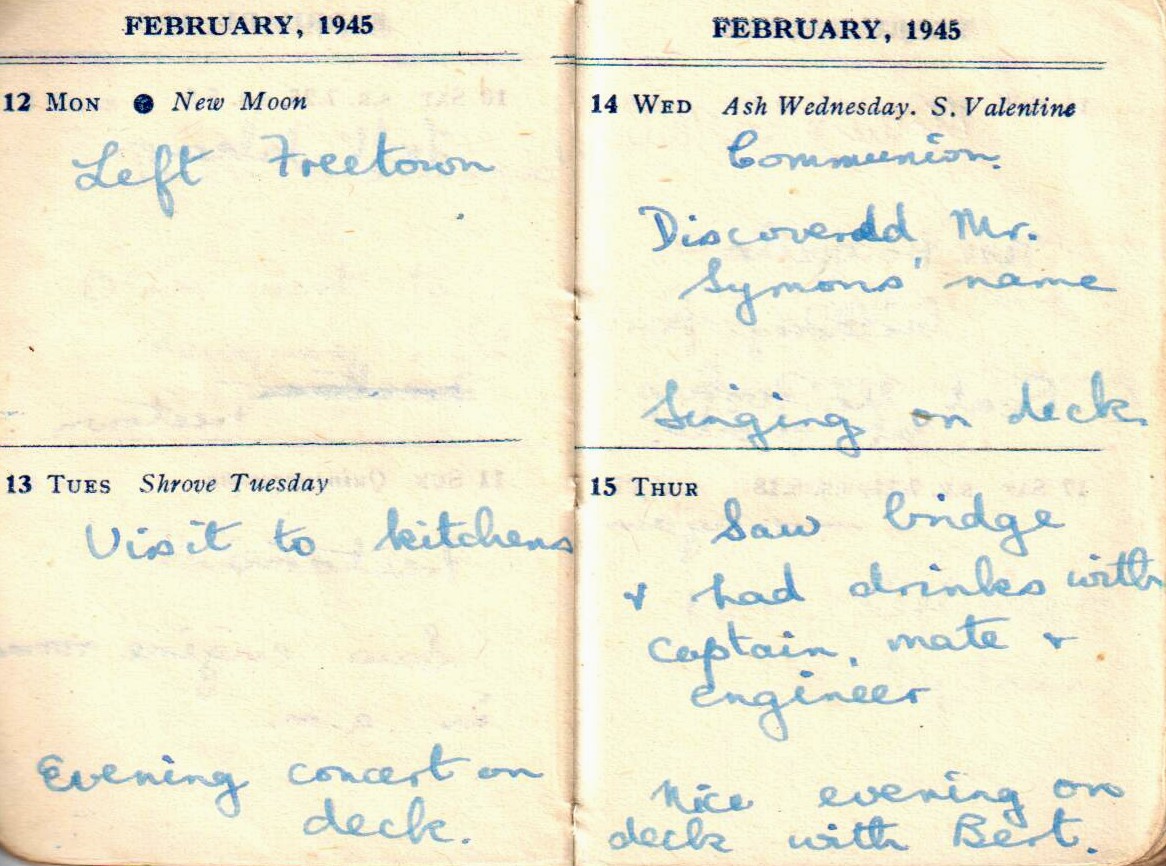 FEBRUARY, 1945
12 MON New Moon
Left Freetown
13 TUES Shrove Tuesday
Visit to kitchens
Evening concert on
deck.
FEBRUARY, 1945
14 WED Ash Wednesday. S. Valentine
Communion.
Discovered Mr.
Symons' name
Singing on deck.
15 THUR
Saw bridge
& had drinks with
captain, mate &
engineer
Nice evening on
deck with Bert.